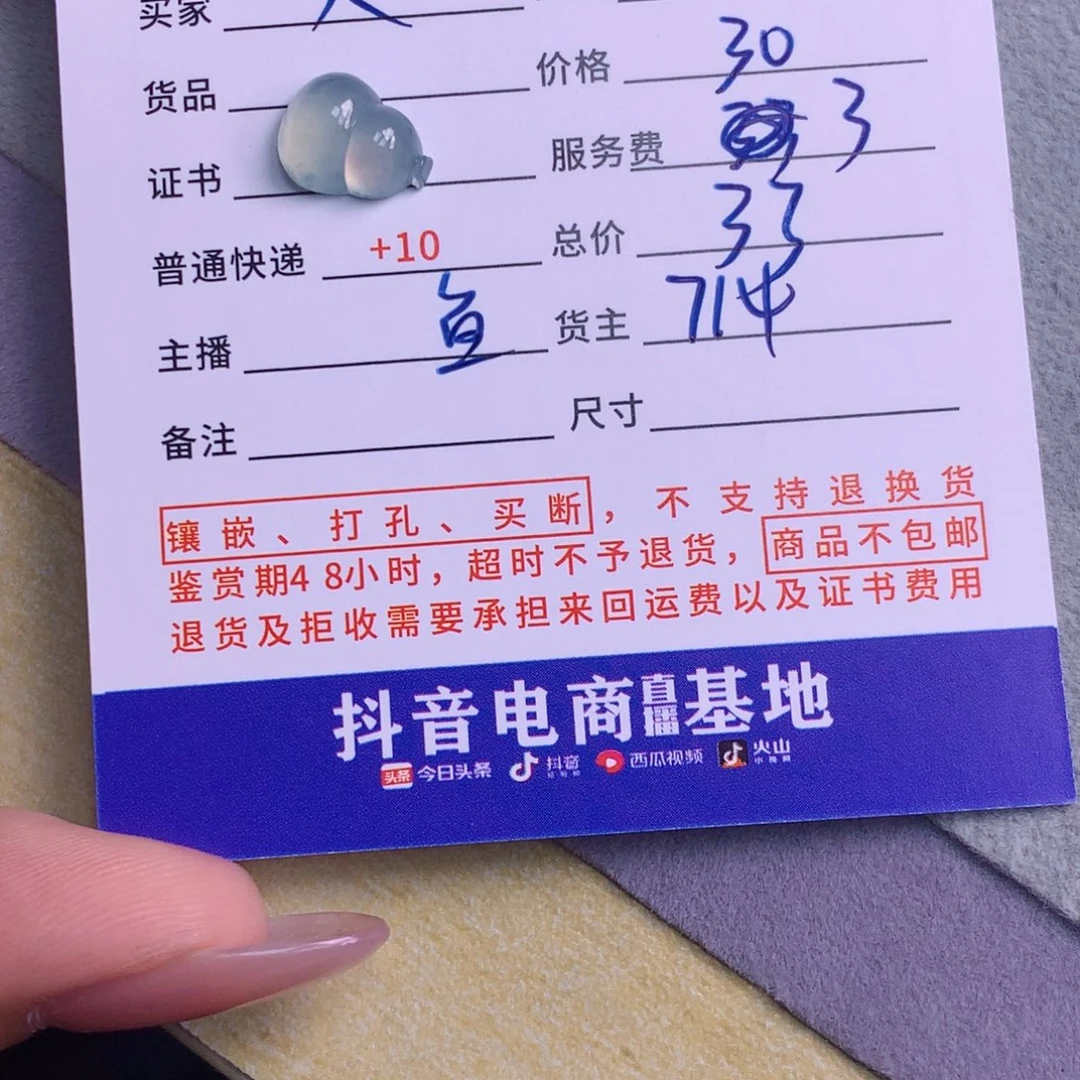 买家
货品 价格 30
证书 服务费 3
普通快递 +10 总价 33
主播 鱼 货主 714
备注 尺寸
镶嵌、打孔、买断，不支持退换货
鉴赏期48小时，超时不予退货，商品不包邮
退货及拒收需要承担来回运费以及证书费用
抖音电商直播基地
头条 今日头条 抖音 西瓜视频 火山